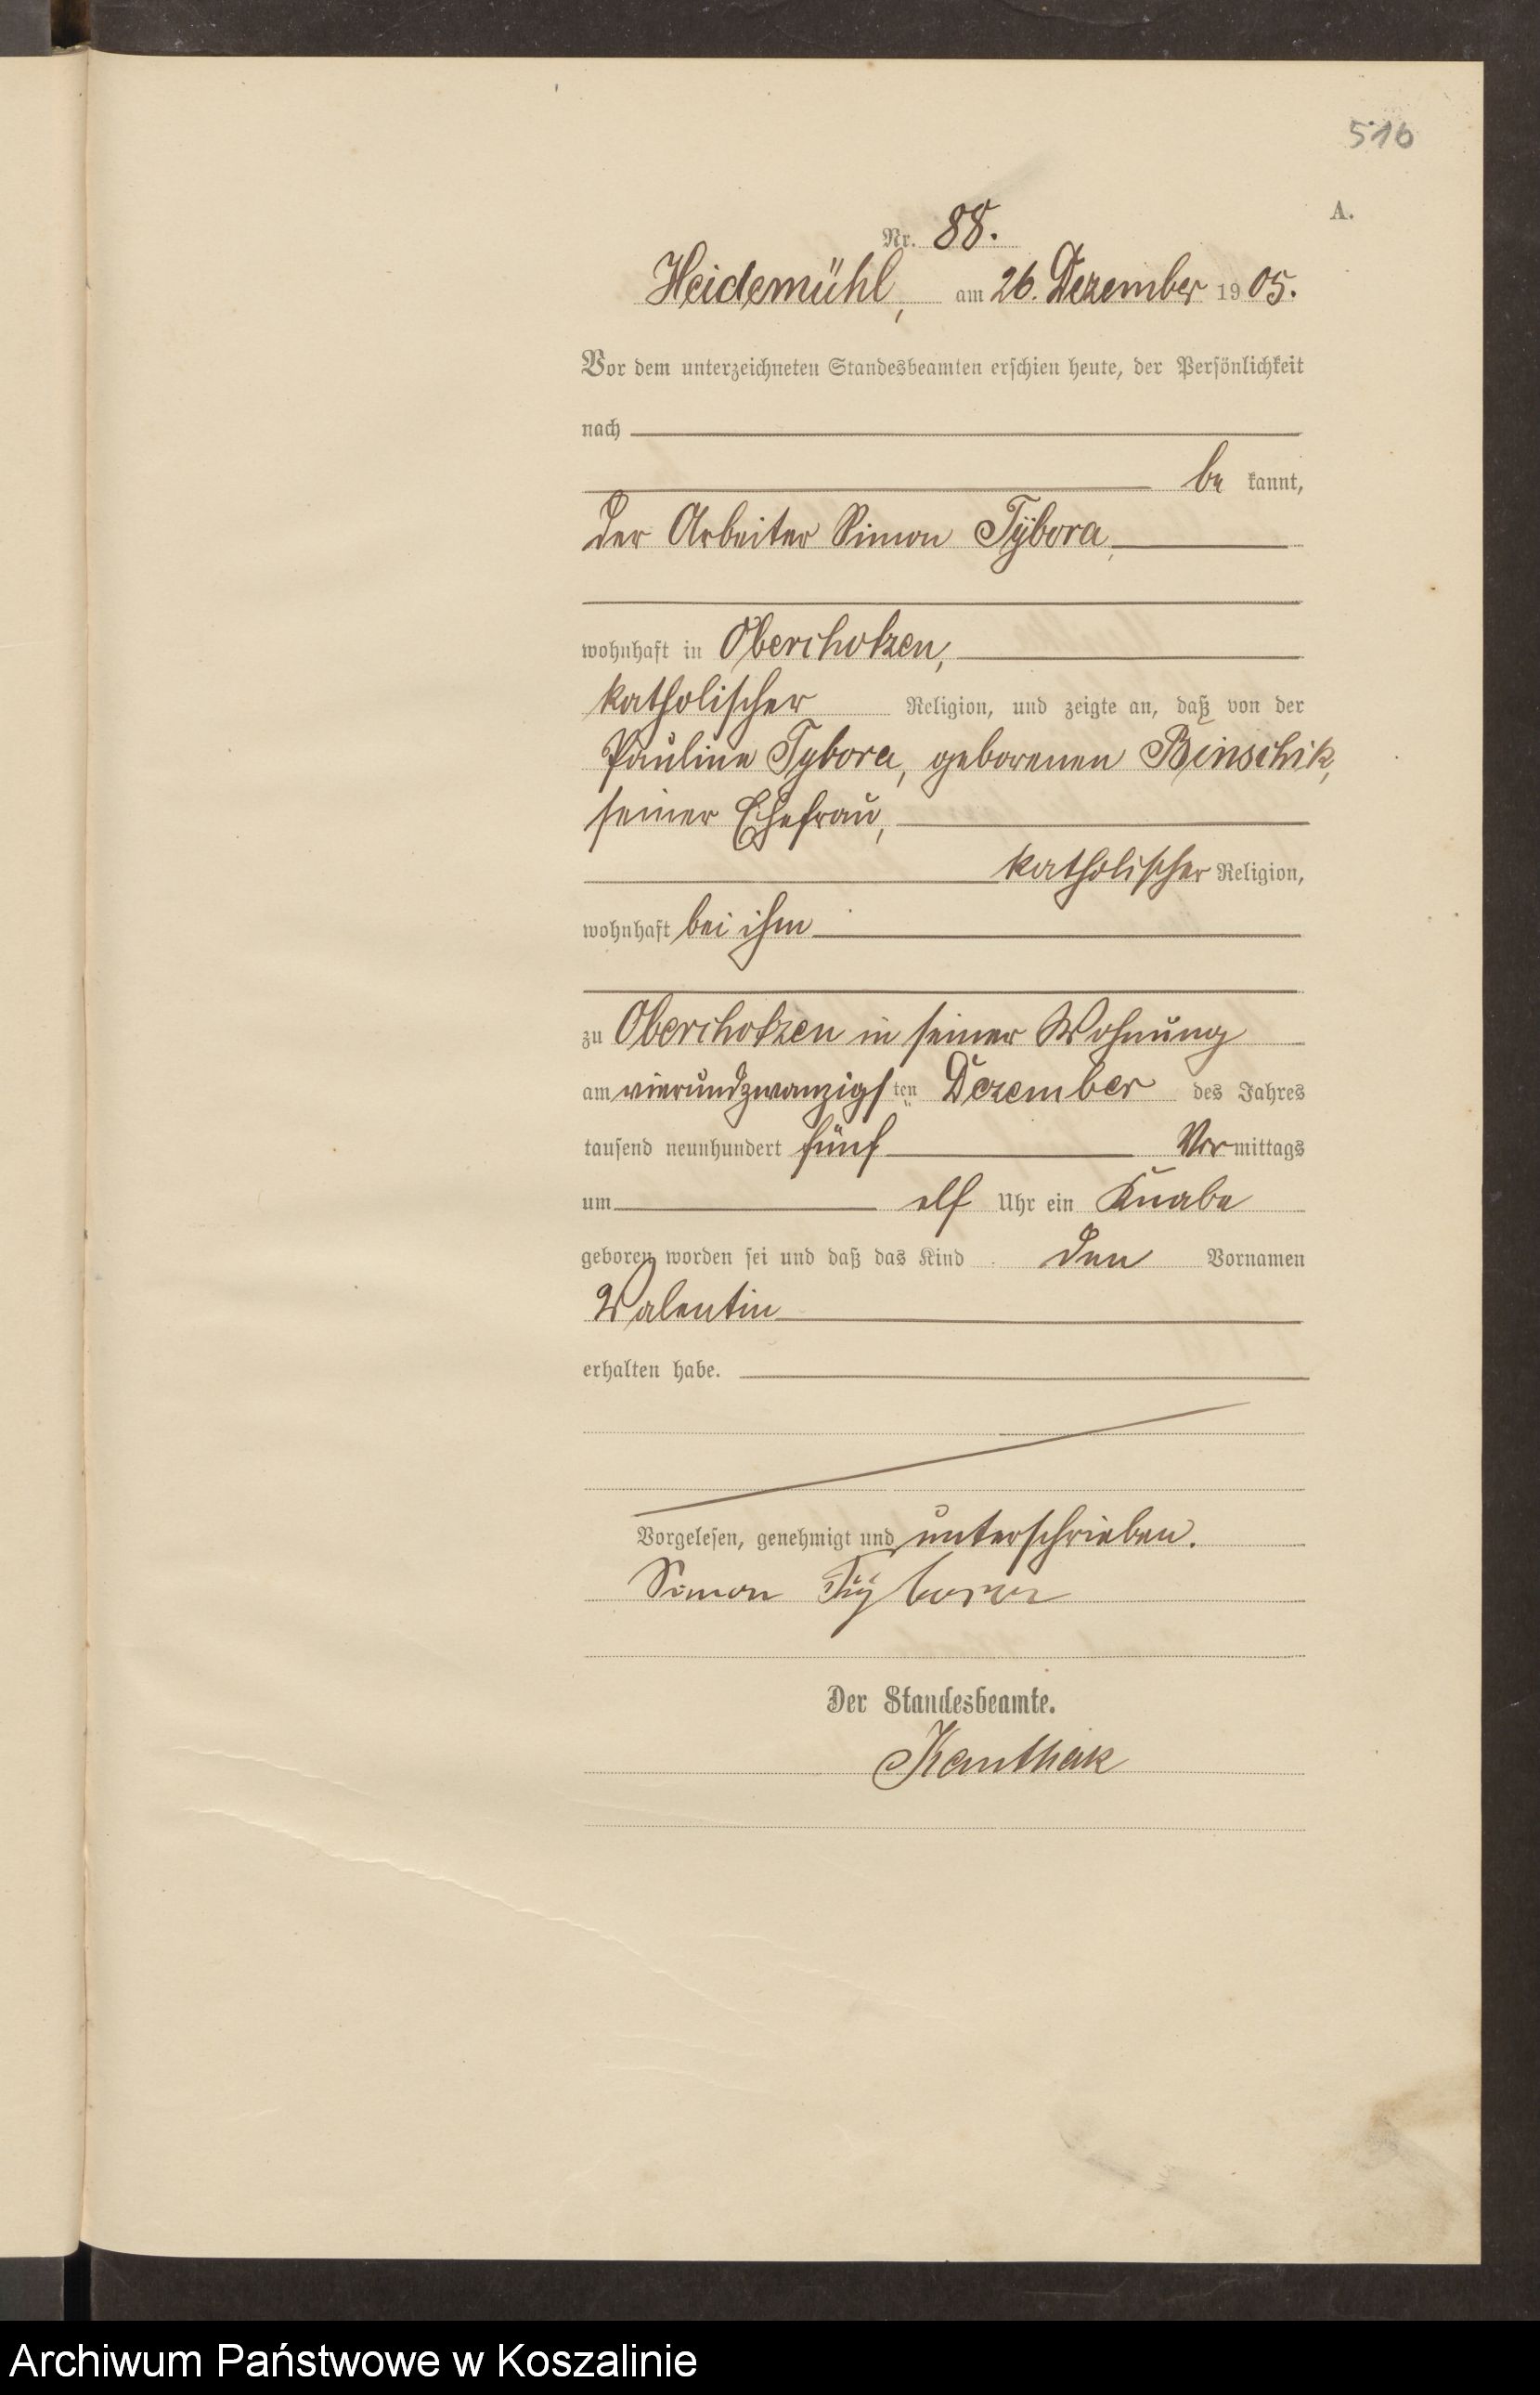 516
A.
Nr. 88.
Heidemühl, am 26. Dezember 1905.
Vor dem unterzeichneten Standesbeamten erschien heute, der Persönlichkeit
nach
be kannt,
der Arbeiter Simon Tÿbora,
wohnhaft in Oberchotzen,
katholischer Religion, und zeigte an, daß von der
Pauline Tybora, geborenen Binschik,
seiner Ehefrau,
katholischer Religion,
wohnhaft bei ihm
zu Oberchotzen in seiner Wohnung
am vierundzwanzigsten Dezember des Jahres
tausend neunhundert fünf Vormittags
um elf Uhr ein Knabe
geboren worden sei und daß das Kind den Vornamen
Valentin
erhalten habe.
Vorgelesen, genehmigt und unterschrieben.
Simon Tÿbora
Der Standesbeamte.
Kanthak
Archiwum Państwowe w Koszalinie